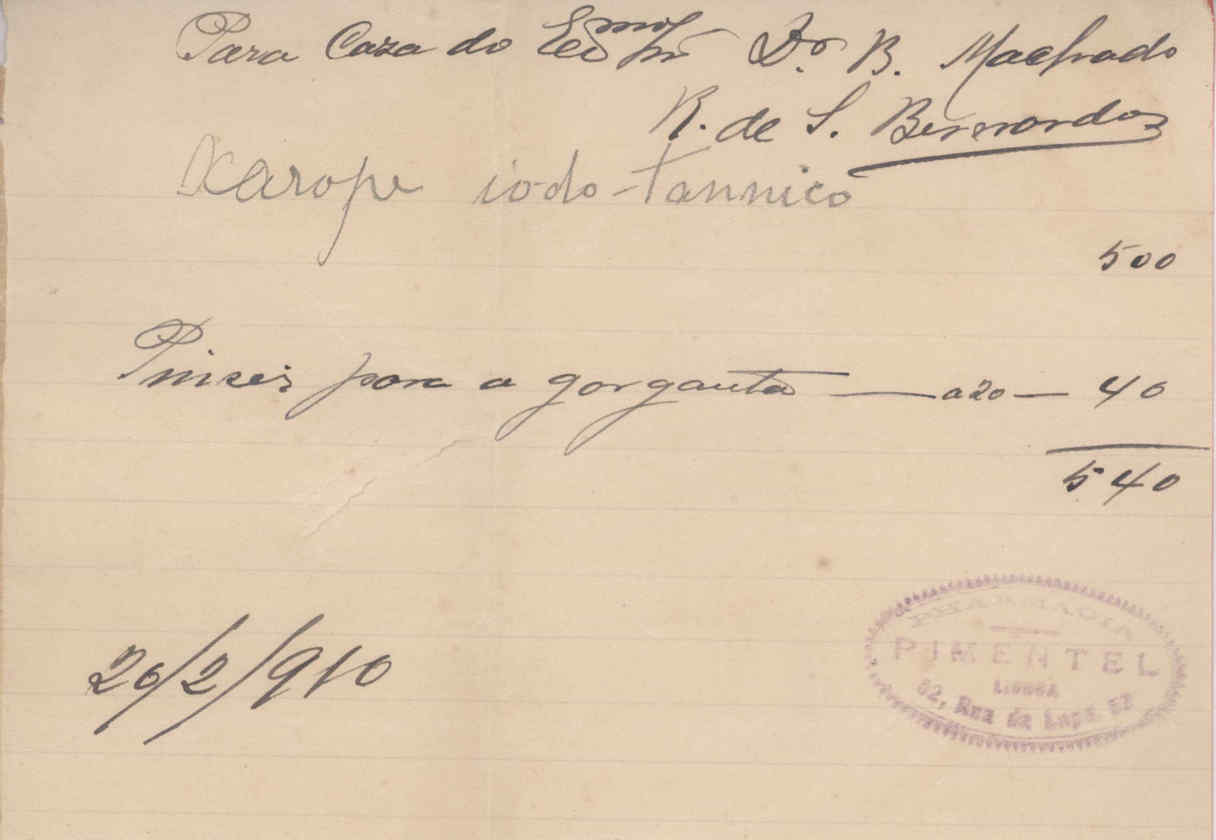 Para Caza do Exmo Sr Dr. B. Machado
R. de S. Bernardo
Xarope iodo-tannico
500
Pinceis para a garganta — a 20 — 40
540
20/2/910
PHARMACIA
PIMENTEL
LISBOA
52, Rua da Lapa 52